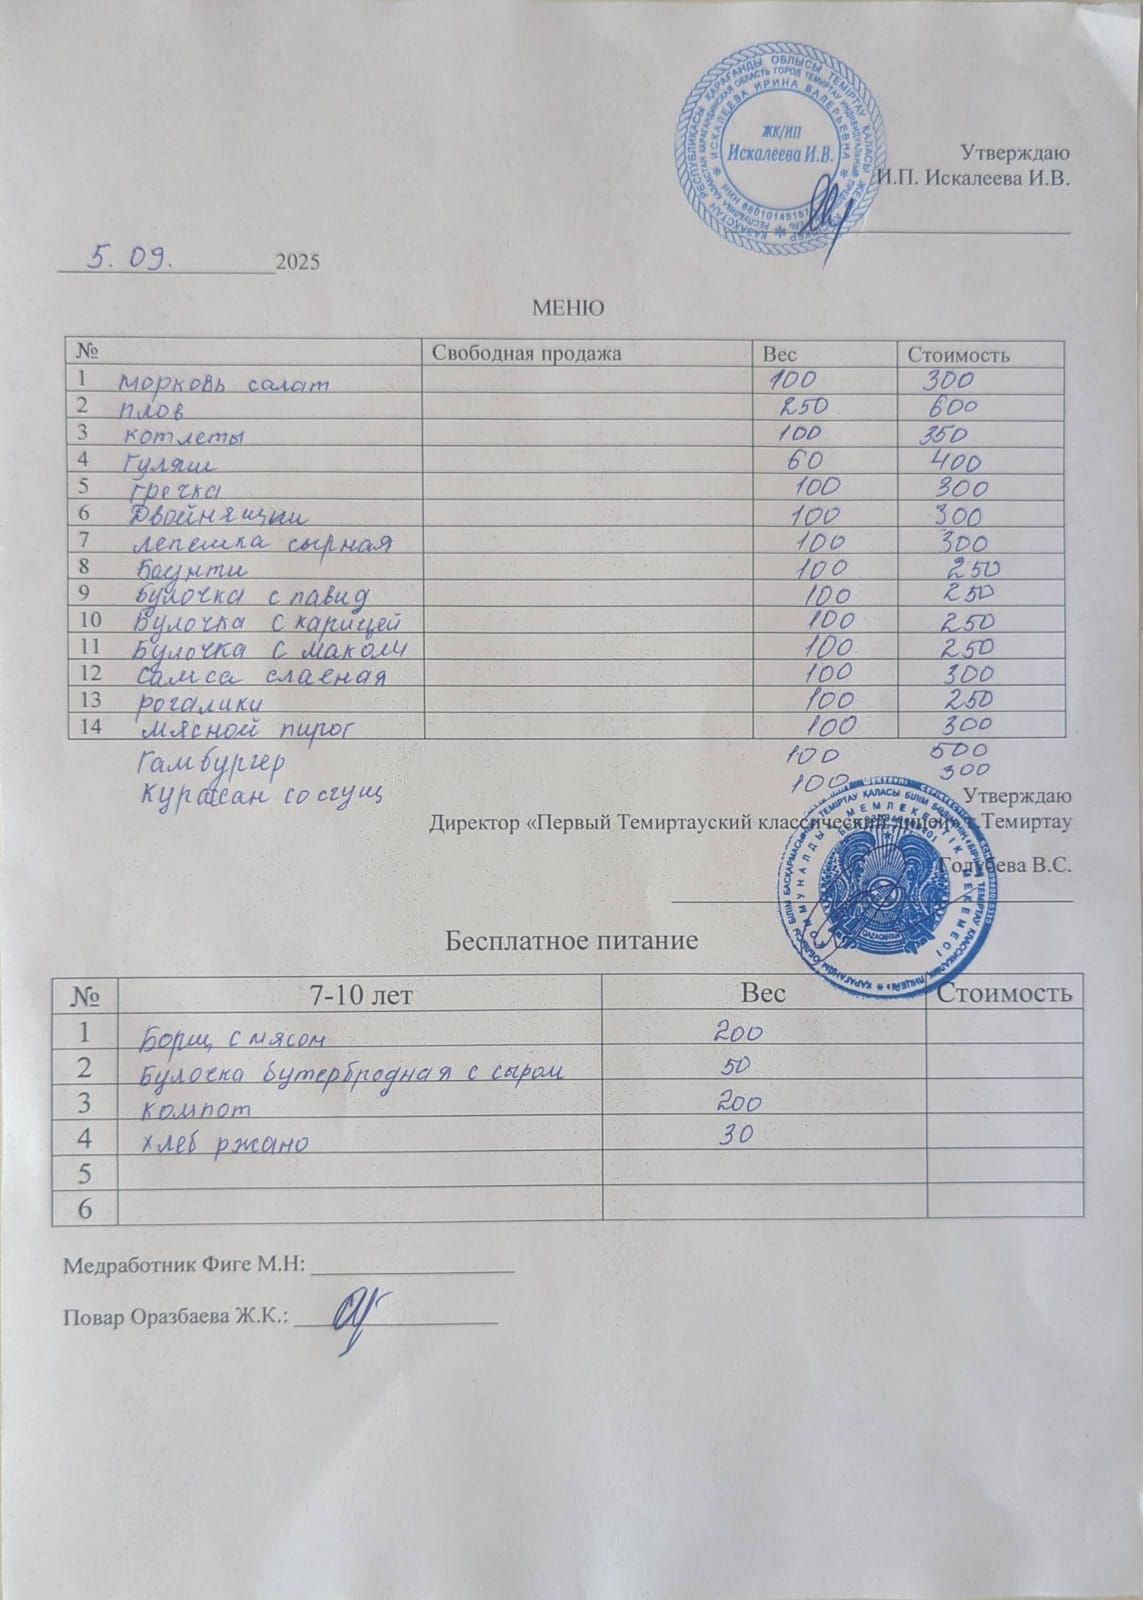 ЖК/ИП
Искалеева И.В.
Утверждаю
И.П. Искалеева И.В.
5. 09. 2025
МЕНЮ
№ Свободная продажа Вес Стоимость
1 морковь салат 100 300
2 плов 250 600
3 котлеты 100 350
4 Гуляш 60 400
5 гречка 100 300
6 Двойняшки 100 300
7 лепешка сырная 100 300
8 Баунти 100 250
9 Булочка с павид 100 250
10 Булочка с карицей 100 250
11 Булочка с маком 100 250
12 самса слаеная 100 300
13 рогалики 100 250
14 мясной пирог 100 300
Гамбургер 100 500
Курассан со сгущ 100 300
Утверждаю
Директор «Первый Темиртауский классический лицей» г.Темиртау
Голубева В.С.
QAZAQSTAN
Бесплатное питание
№ 7-10 лет Вес Стоимость
1 Борщ с мясом 200
2 Булочка бутербродная с сыром 50
3 компот 200
4 хлеб ржано 30
5
6
Медработник Фиге М.Н:
Повар Оразбаева Ж.К.: